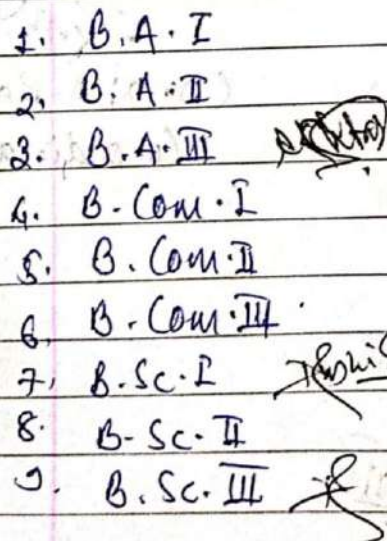 1. B.A. I
2. B.A. II
3. B.A. III
4. B. Com. I
5. B. Com. II
6. B. Com. III
7. B.Sc. I
8. B-Sc. II
9. B.Sc. III